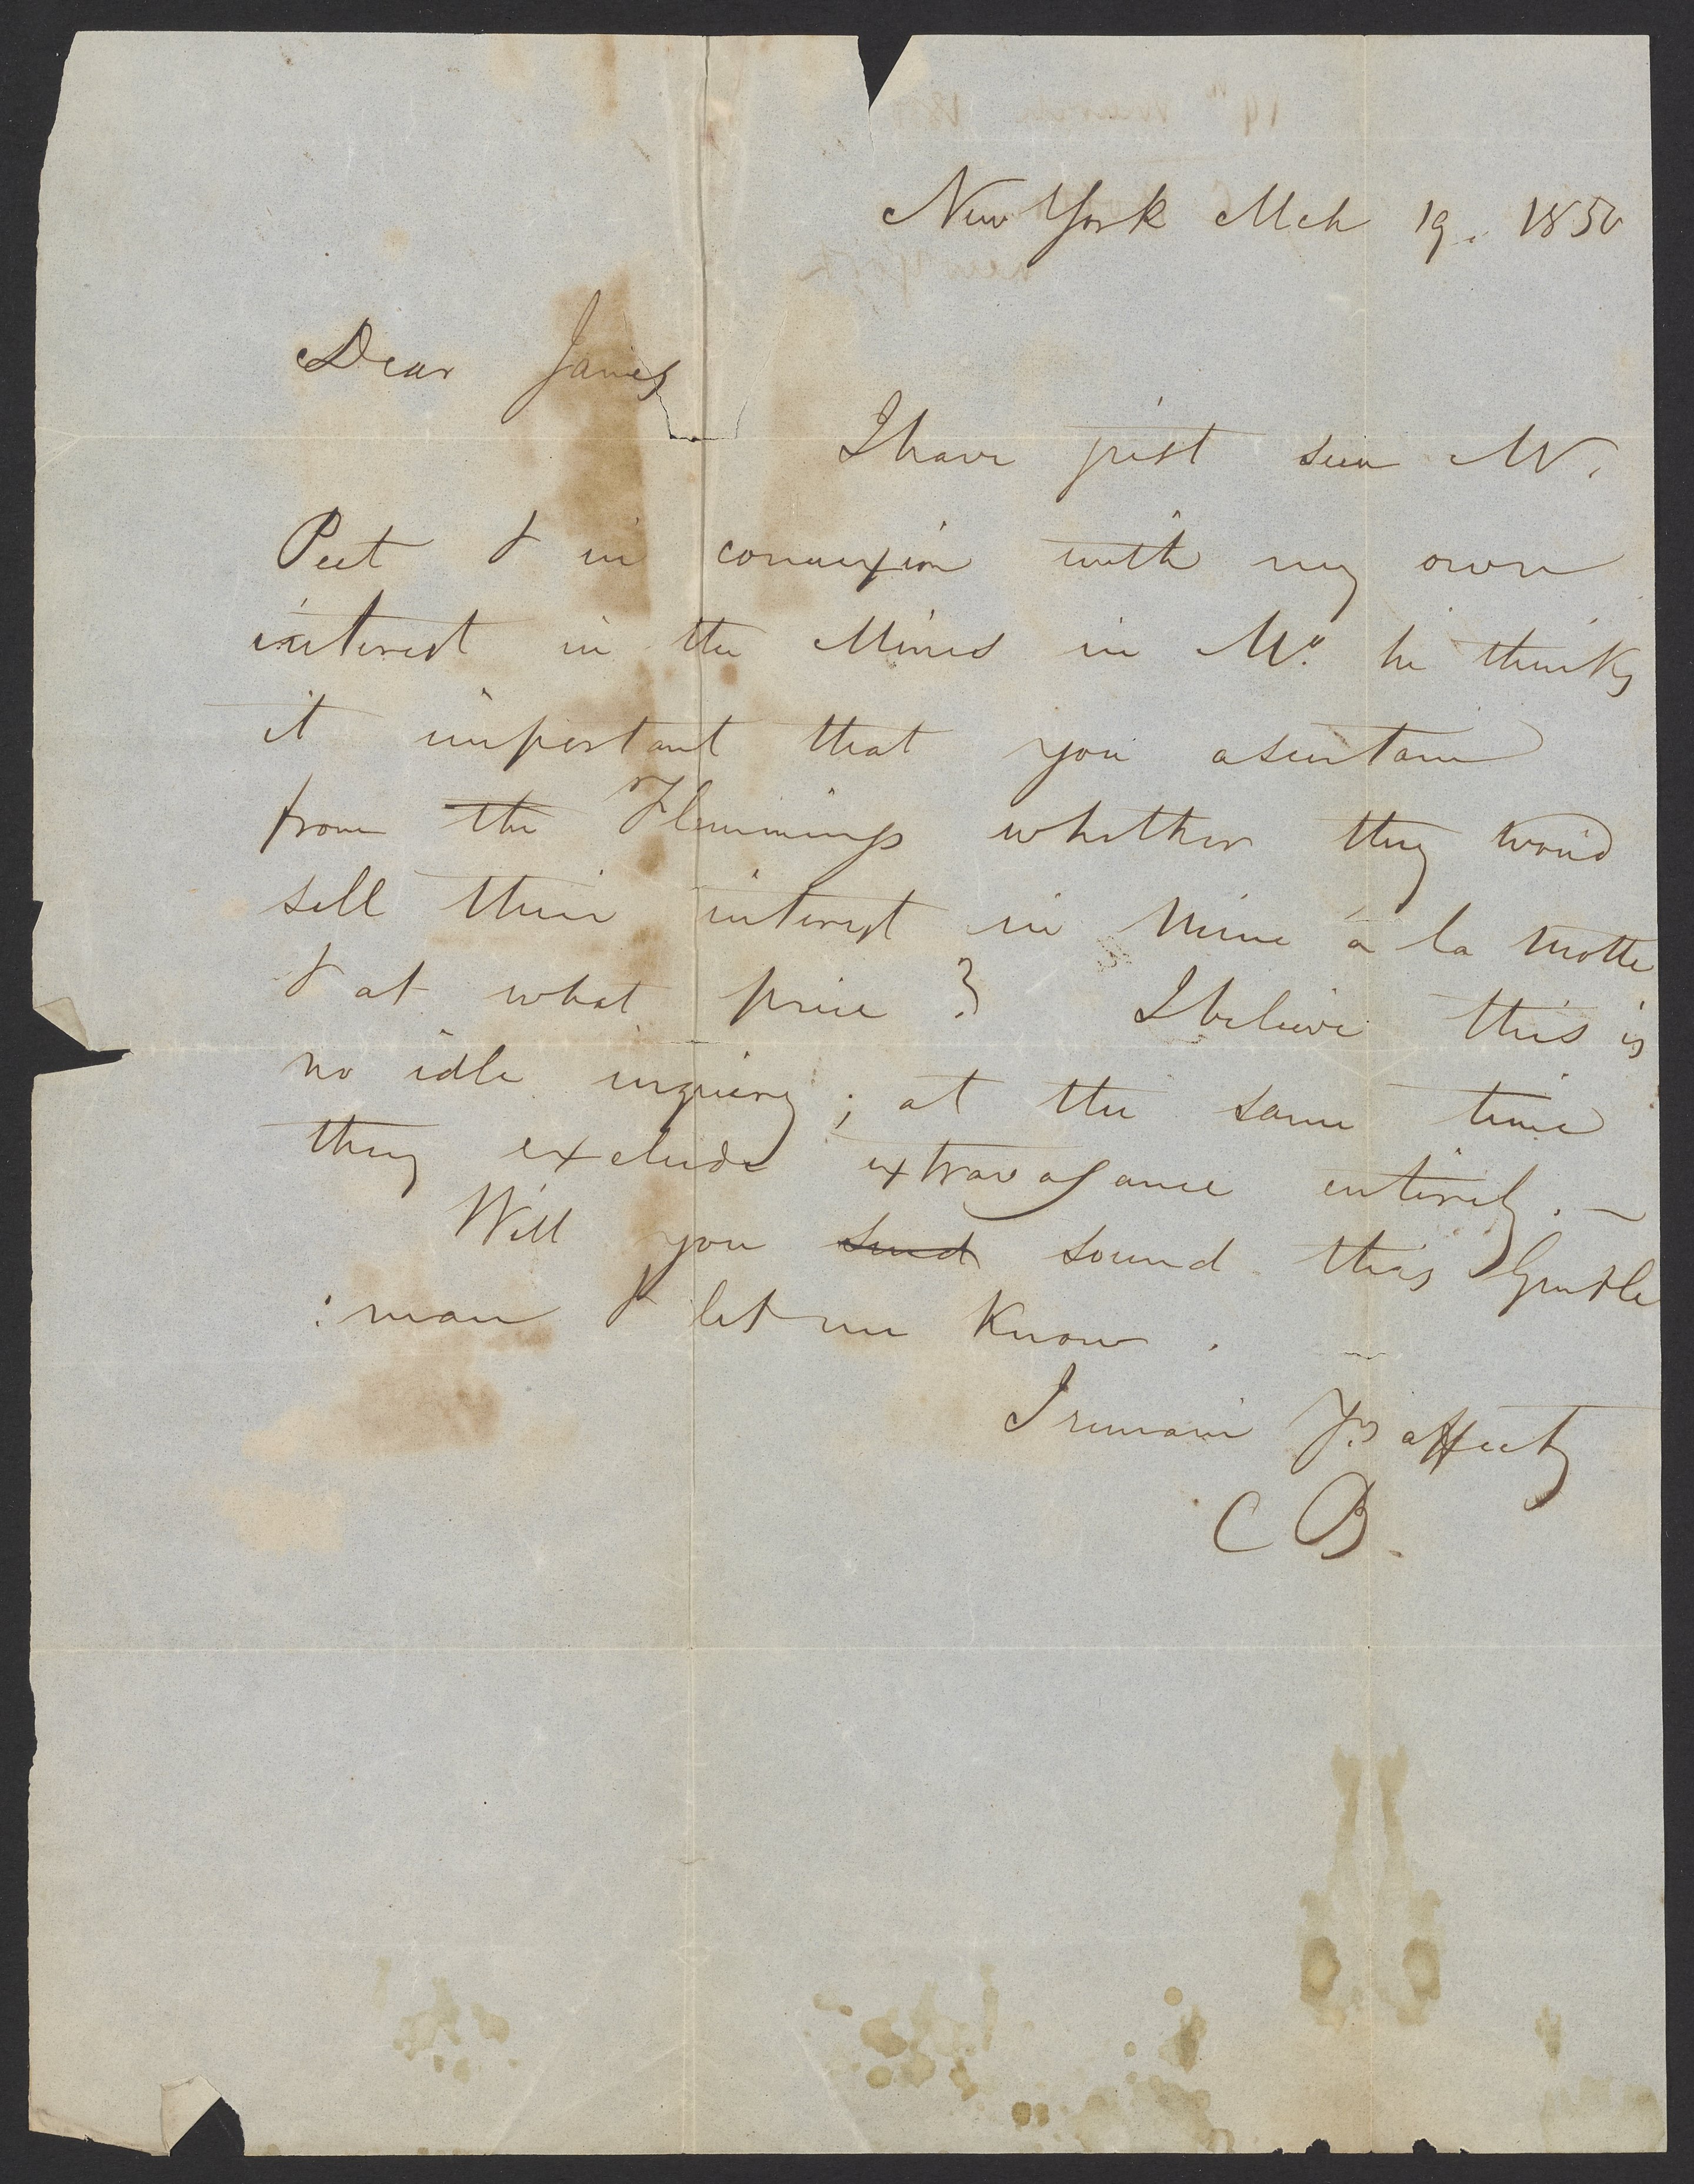 New York Mch 19. 1850
Dear James
I have just seen Mr.
Peet & in connexion with my own
interest in the Mines in Mo. he thinks
it important that you asertain
from the Flemmings whether they would
sell their interest in Mine á la Motte
& at what price? I believe this is
no idle inquiry; at the same time
they exclude extravagance entirely. —
Will you send sound this Gentle
: man & let me know.
I remain Yrs affecty
C B.